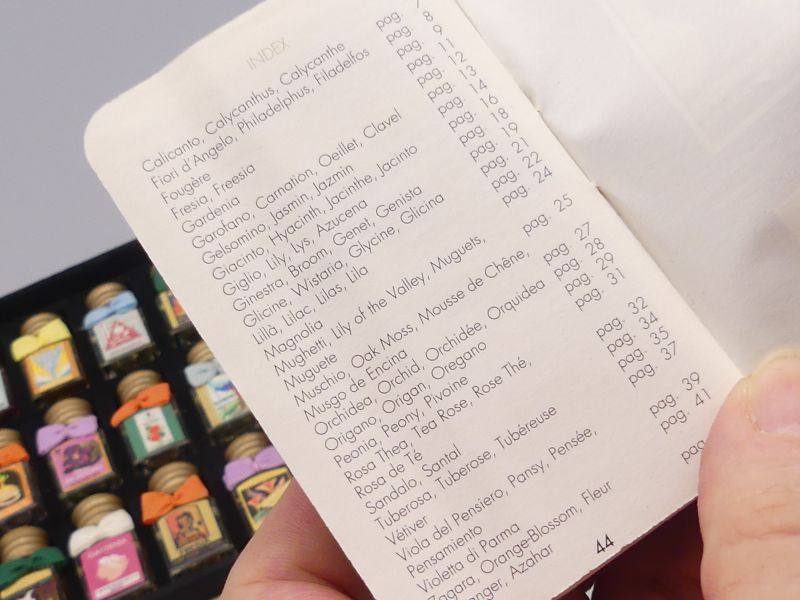 INDEX
Calicanto, Calycanthus, Calycanthe pag. 7
Fiori d'Angelo, Philadelphus, Filadelfos pag. 8
Fougère pag. 9
Fresia, Freesia pag. 11
Gardenia pag. 12
Garofano, Carnation, Oeillet, Clavel pag. 13
Gelsomino, Jasmin, Jazmin pag. 14
Giacinto, Hyacinth, Jacinthe, Jacinto pag. 16
Giglio, Lily, Lys, Azucena pag. 18
Ginestra, Broom, Genet, Genista pag. 19
Glicine, Wistaria, Glycine, Glicina pag. 21
Lillà, Lilac, Lilas, Lila pag. 22
Magnolia pag. 24
Mughetti, Lily of the Valley, Muguets,
Muguete pag. 25
Muschio, Oak Moss, Mousse de Chêne,
Musgo de Encina pag. 27
Orchidea, Orchid, Orchidée, Orquidea pag. 28
Origano, Origan, Oregano pag. 29
Peonia, Peony, Pivoine pag. 31
Rosa Thea, Tea Rose, Rose Thé,
Rosa de Té pag. 32
Sandalo, Santal pag. 34
Tuberosa, Tuberose, Tubéreuse pag. 35
Vétiver pag. 37
Viola del Pensiero, Pansy, Pensée,
Pensamiento pag. 39
Violetta di Parma pag. 41
Zagara, Orange-Blossom, Fleur
Azahar
44
GARDENIA